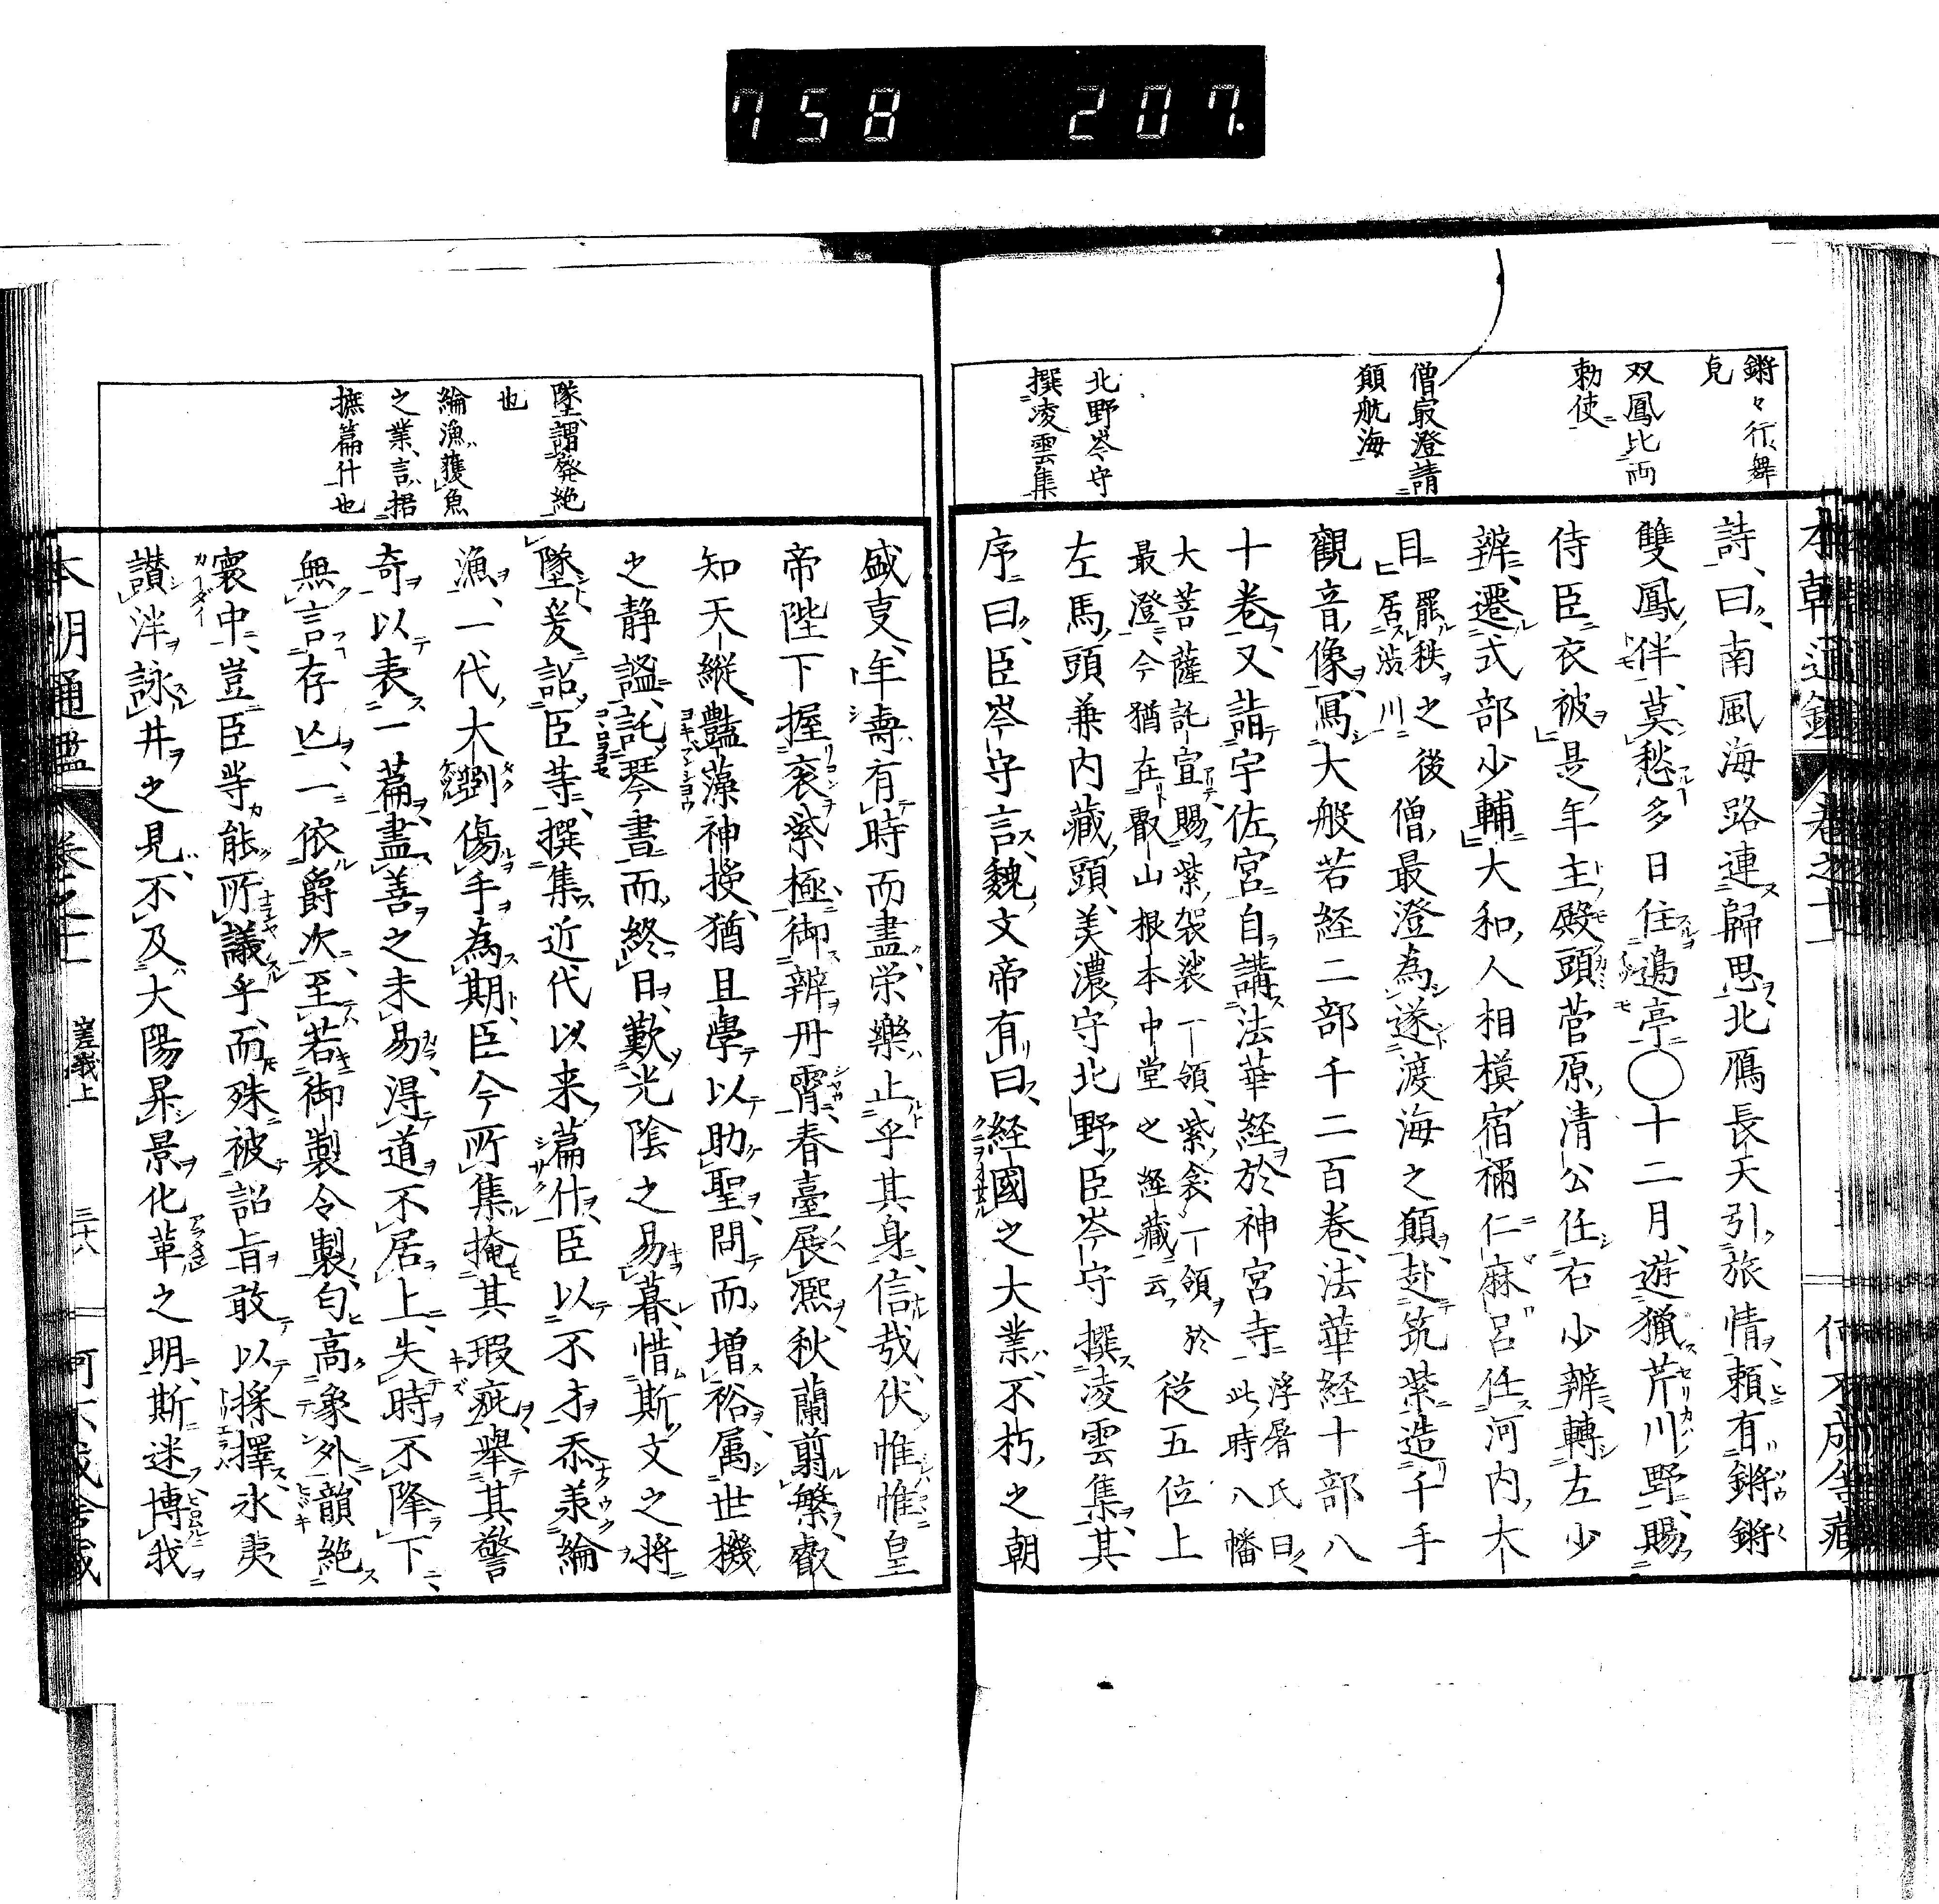 758 207.
鏘々行舞
皃
双鳳比両
勅使
僧最澄請
願航海
北野岑守
撰凌雲集
本朝通鑑 卷之二十
何不成舎藏
詩曰南風海路連歸思北鴈長天引旅情頼有鏘鏘
雙鳳伴莫愁多日住邊亭○十二月遊獵芹川野賜
侍臣衣被是年主殿頭菅原清公任右少辨轉左少
辨遷式部少輔大和人相模宿禰仁麻呂任河内大
目罷秩之後居澁川僧最澄為遂渡海之願赴筑紫造千手
觀音像寫大般若経二部千二百巻法華経十部八
十巻又詣宇佐宮自講法華経於神宮寺浮屠氏曰此時八幡
大菩薩託宣賜紫袈裟一領紫衾一領於最澄今猶在叡山根本中堂之経藏云從五位上
左馬頭兼内藏頭美濃守北野臣岑守撰凌雲集其
序曰臣岑守言魏文帝有曰経國之大業不朽之朝
墜謂癈絶
也
綸漁獲魚
之業言捃
摭篇什也
盛叓年壽有時而盡栄樂止乎其身信哉伏惟惟皇
帝陛下握裒紫極御辨丹霄春臺展凞秋蘭翦繁叡
知天縱豔藻神授猶且學以助聖問而増裕属世機
之静謐託琴書而終日歎光陰之易暮惜斯文之将
墜爰詔臣等撰集近代以来篇什臣以不才忝羕綸
漁一代大劉傷手為期臣今所集掩其瑕疵舉其警
奇以表一篇盡善之未易淂道不居上失時不降下
無言存亾一依爵次至若御製令製匂高象外韻絶
寰中豈臣等能所議乎而殊被詔旨敢以採擇氷夷
讃泮詠井之見不及大陽昇景化革之明斯迷博我
本朝通鑑 卷之二十 嵯峨上 三十八 何不成舎藏